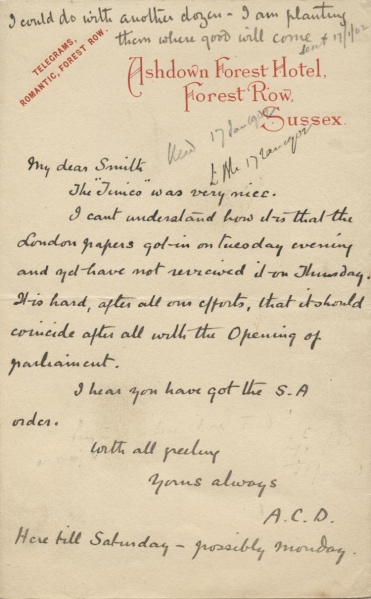 I could do with another dozen - I am planting
them where good will come
sent 17/1/02
TELEGRAMS,
ROMANTIC, FOREST ROW.
Ashdown Forest Hotel,
Forest Row,
Sussex.
17 Jan 1902
17 Jan 1902
My dear Smith
The "Times" was very nice.
I cant understand how it is that the
London papers got it on tuesday evening
and yet have not reviewed it on Thursday.
It is hard, after all our efforts, that it should
coincide after all with the Opening of
parliament.
I hear you have got the S-A
order.
With all greeting
Yours always
A.C.D.
Here till Saturday - possibly Monday.